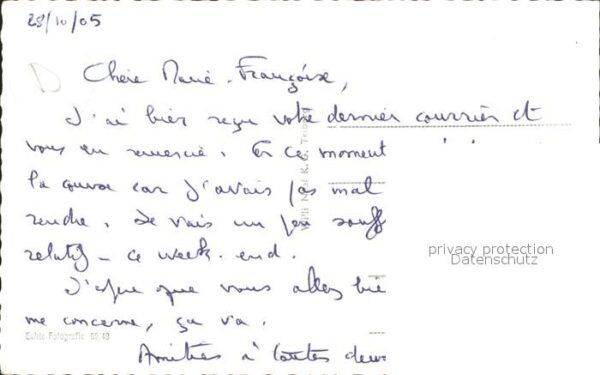 28/10/05
Chère Marie-Françoise,
J'ai bien reçu votre dernier courrier et
vous en remercie. En ce moment
la car j'avais pas mal
rendre. Je vais un peu souff
relatif - ce week-end.
J'espère que vous allez bie
me concerne, ça va.
Amitiés à toutes deux
privacy protection
Datenschutz
Echte Fotografie